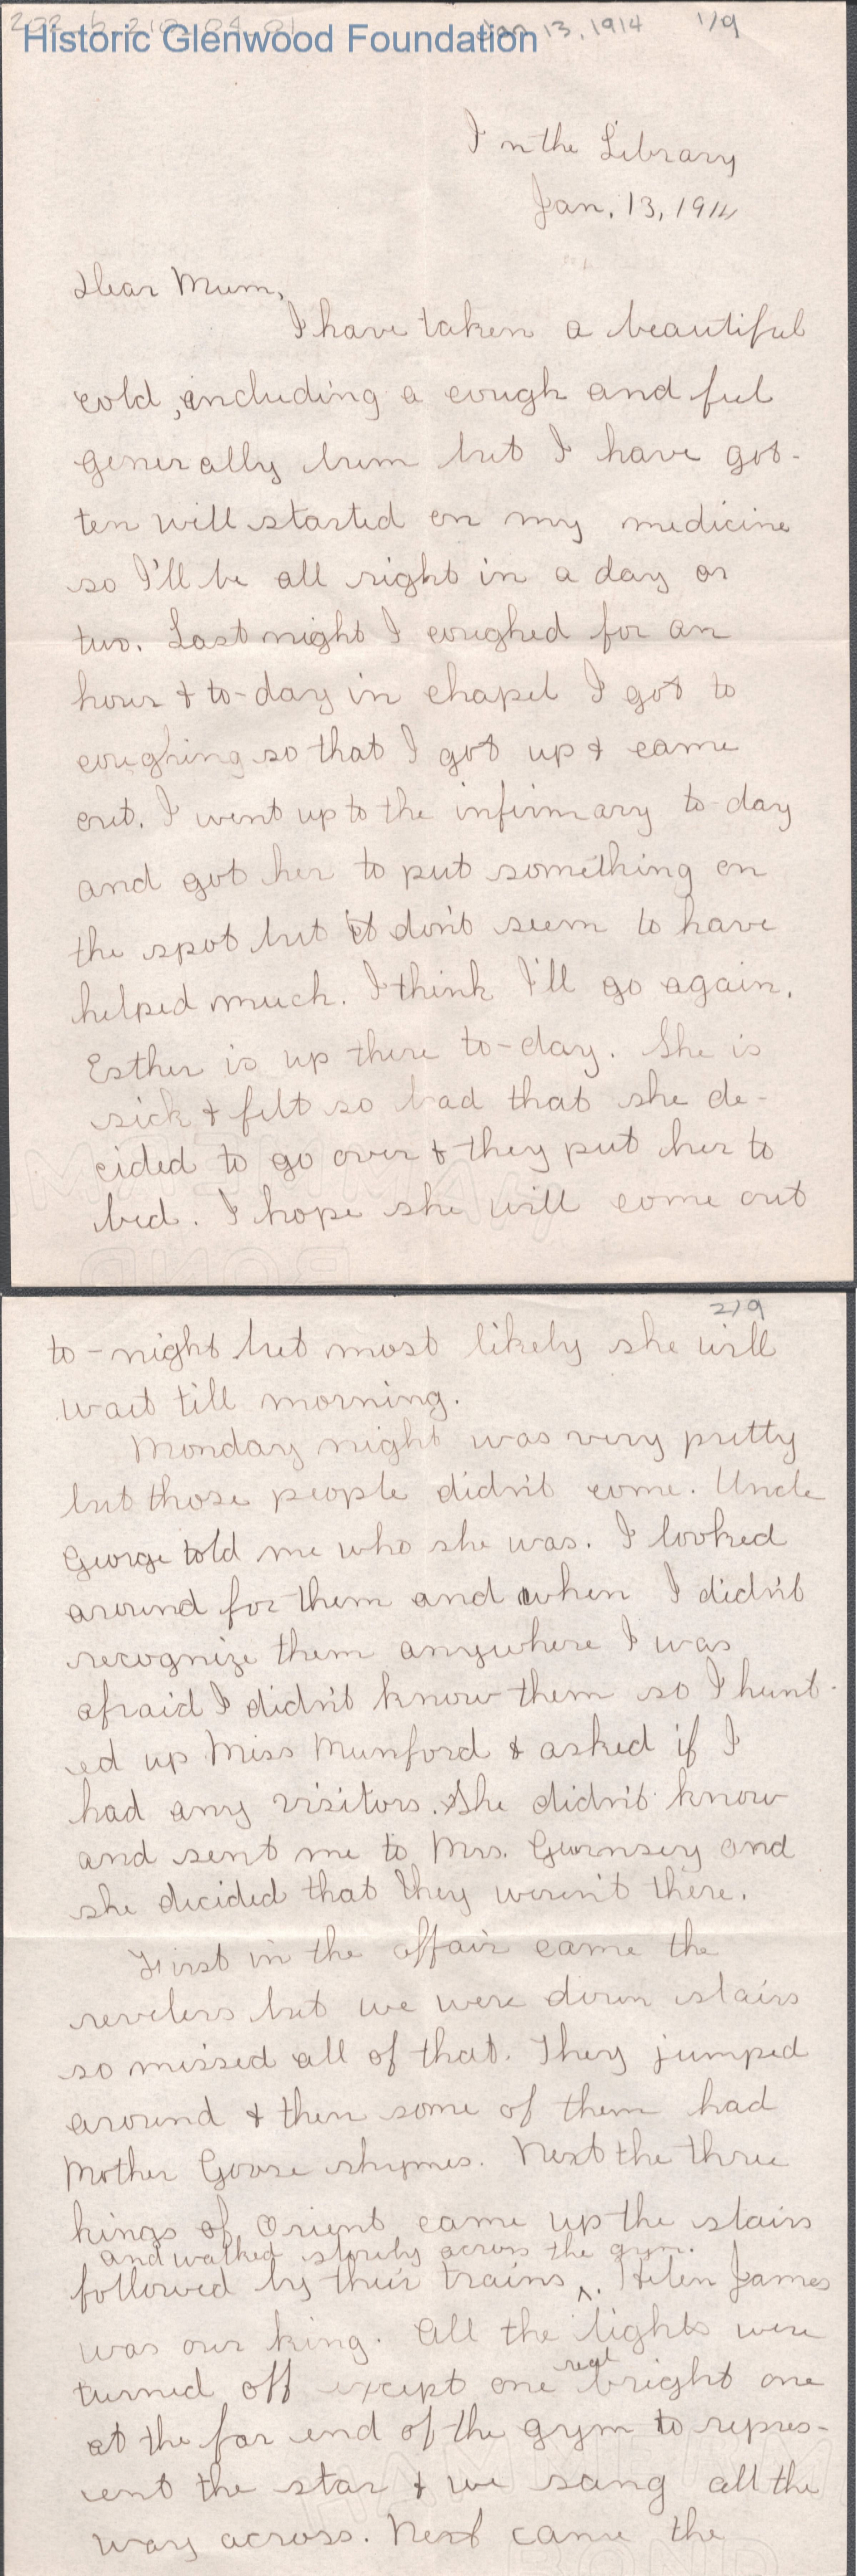 202.b.210.04.01 Jan 13, 1914 1/9
Historic Glenwood Foundation
In the Library
Jan. 13, 1914
Dear Mum,
I have taken a beautiful
cold, including a cough and feel
generally bum but I have got-
ten well started on my medicine
so I'll be all right in a day or
two. Last night I coughed for an
hour & to-day in chapel I got to
coughing so that I got up & came
out. I went up to the infirmary to-day
and got her to put something on
the spot but it don't seem to have
helped much. I think I'll go again.
Esther is up there to-day. She is
sick & felt so bad that she de-
cided to go over & they put her to
bed. I hope she will come out
2/9
to-night but most likely she will
wait till morning.
Monday night was very pretty
but those people didn't come. Uncle
George told me who she was. I looked
around for them and when I didn't
recognize them anywhere I was
afraid I didn't know them so I hunt-
ed up Miss Munford & asked if I
had any visitors. She didn't know
and sent me to Mrs. Gurnsey and
she decided that they weren't there.
First in the affair came the
revelers but we were down stairs
so missed all of that. They jumped
around & then some of them had
Mother Goose rhymes. Next the three
kings of Orient came up the stairs
and walked slowly across the gym.
followed by their trains ^. Helen James
was our king. All the lights were
turned off except one real bright one
at the far end of the gym to repres-
ent the star & we sang all the
way across. Next came the